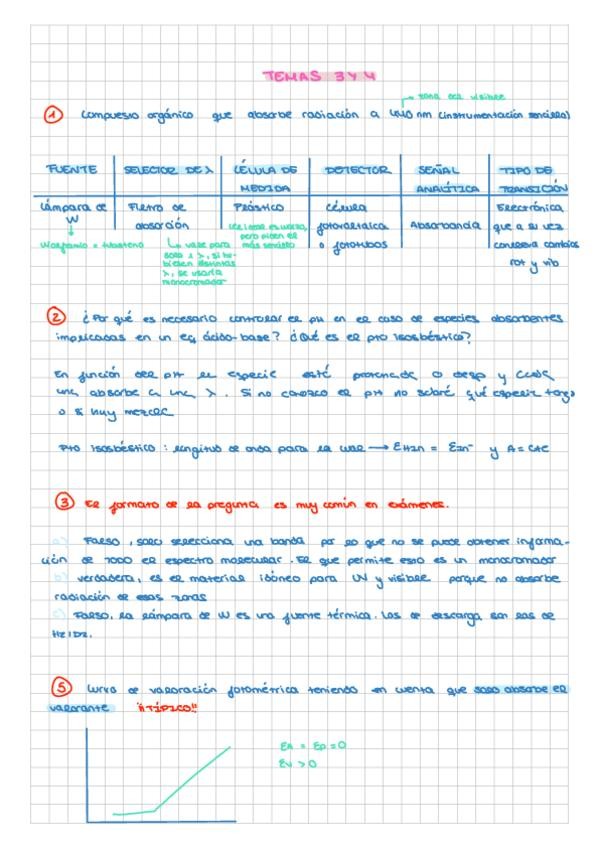 TEMAS 3 Y 4
zona del visible
1 Compuesto orgánico que absorbe radiación a 440 nm (instrumentación sencilla)
FUENTE | SELECTOR DE λ | CÉLULA DE MEDIDA | DETECTOR | SEÑAL ANALÍTICA | TIPO DE TRANSICIÓN
Lámpara de W | Filtro de absorción | Plástico | Célula fotovoltaica o fototubos | Absorbancia | Electrónica que a su vez conlleva cambios rot y vib
Wolframio = tungsteno
vale para solo 1 λ, si hubiesen distintas λ, se usaría monocromador
pero piden el más sencillo
2 ¿Por qué es necesario controlar el pH en el caso de especies absorbentes
implicadas en un eq ácido-base? ¿Qué es el pto isosbéstico?
En función del pH la especie está protonada o desp y cada
una absorbe a una λ. Si no conozco el pH no sabré qué especie tengo
o si hay mezcla
Pto isosbéstico: longitud de onda para la cual → εHIn = εIn⁻ y A = cte
3 El formato de la pregunta es muy común en exámenes.
a) Falso, solo selecciona una banda por lo que no se puede obtener informa-
ción de TODO el espectro molecular. El que permite esto es un monocromador
b) verdadera, es el material idóneo para UV y visible porque no absorbe
radiación de esas zonas
c) Falso, la lámpara de W es una fuente térmica. Las de descarga son las de
H2/D2.
5 Curva de valoración fotométrica teniendo en cuenta que solo absorbe el
valorante ¡¡TÍPICO!!
εA = εP = 0
εV > 0